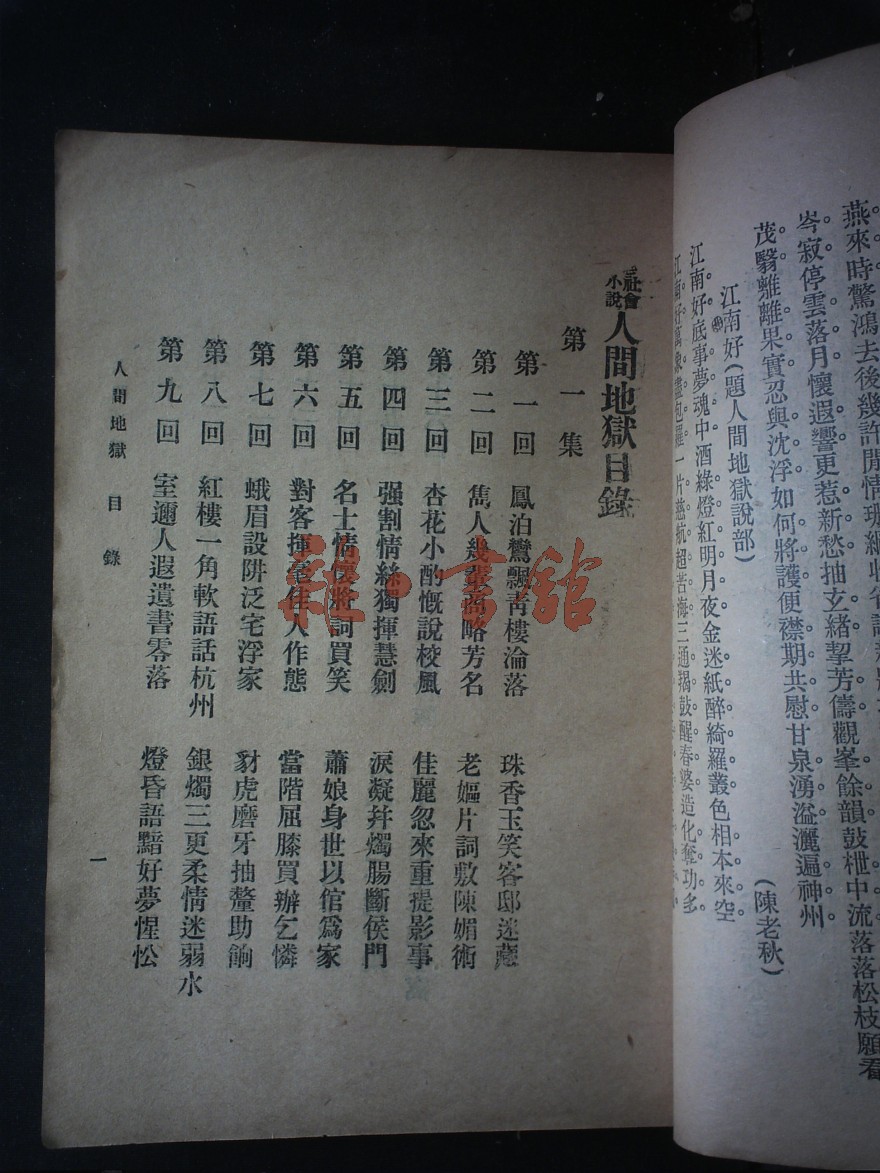 燕來時驚鴻去後幾許閒情班
岑寂停雲落月懷遐響更惹新愁抽玄緒挈芳儔觀峯餘韻鼓枻中流落落松枝願看
茂翳離離果實忍與沈浮如何將護便襟期共慰甘泉湧溢灑遍神州
(陳老秋)
江南好(題人間地獄說部)
江南好底事夢魂中酒綠燈紅明月夜金迷紙醉綺羅叢色相本來空
江南好萬象盡包羅一片慈航超苦海三通羯鼓醒春婆造化奪功多
社會小說人間地獄目錄
第一集
第一回 鳳泊鸞飄靑樓淪落 珠香玉笑客邸迷藏
第二回 雋人幾輩商略芳名 老嫗片詞敷陳媚術
第三回 杏花小酌慨說校風 佳麗忽來重提影事
第四回 强割情絲獨揮慧劍 淚凝幷燭腸斷侯門
第五回 名士情懷將詞買笑 蕭娘身世以倌爲家
第六回 對客揮 佳人作態 當階屈膝買辦乞憐
第七回 蛾眉設阱泛宅浮家 豺虎磨牙抽釐助餉
第八回 紅樓一角軟語話杭州 銀燭三更柔情迷弱水
第九回 室邇人遐遺書零落 燈昏語黯好夢惺忪
人間地獄 目錄
一